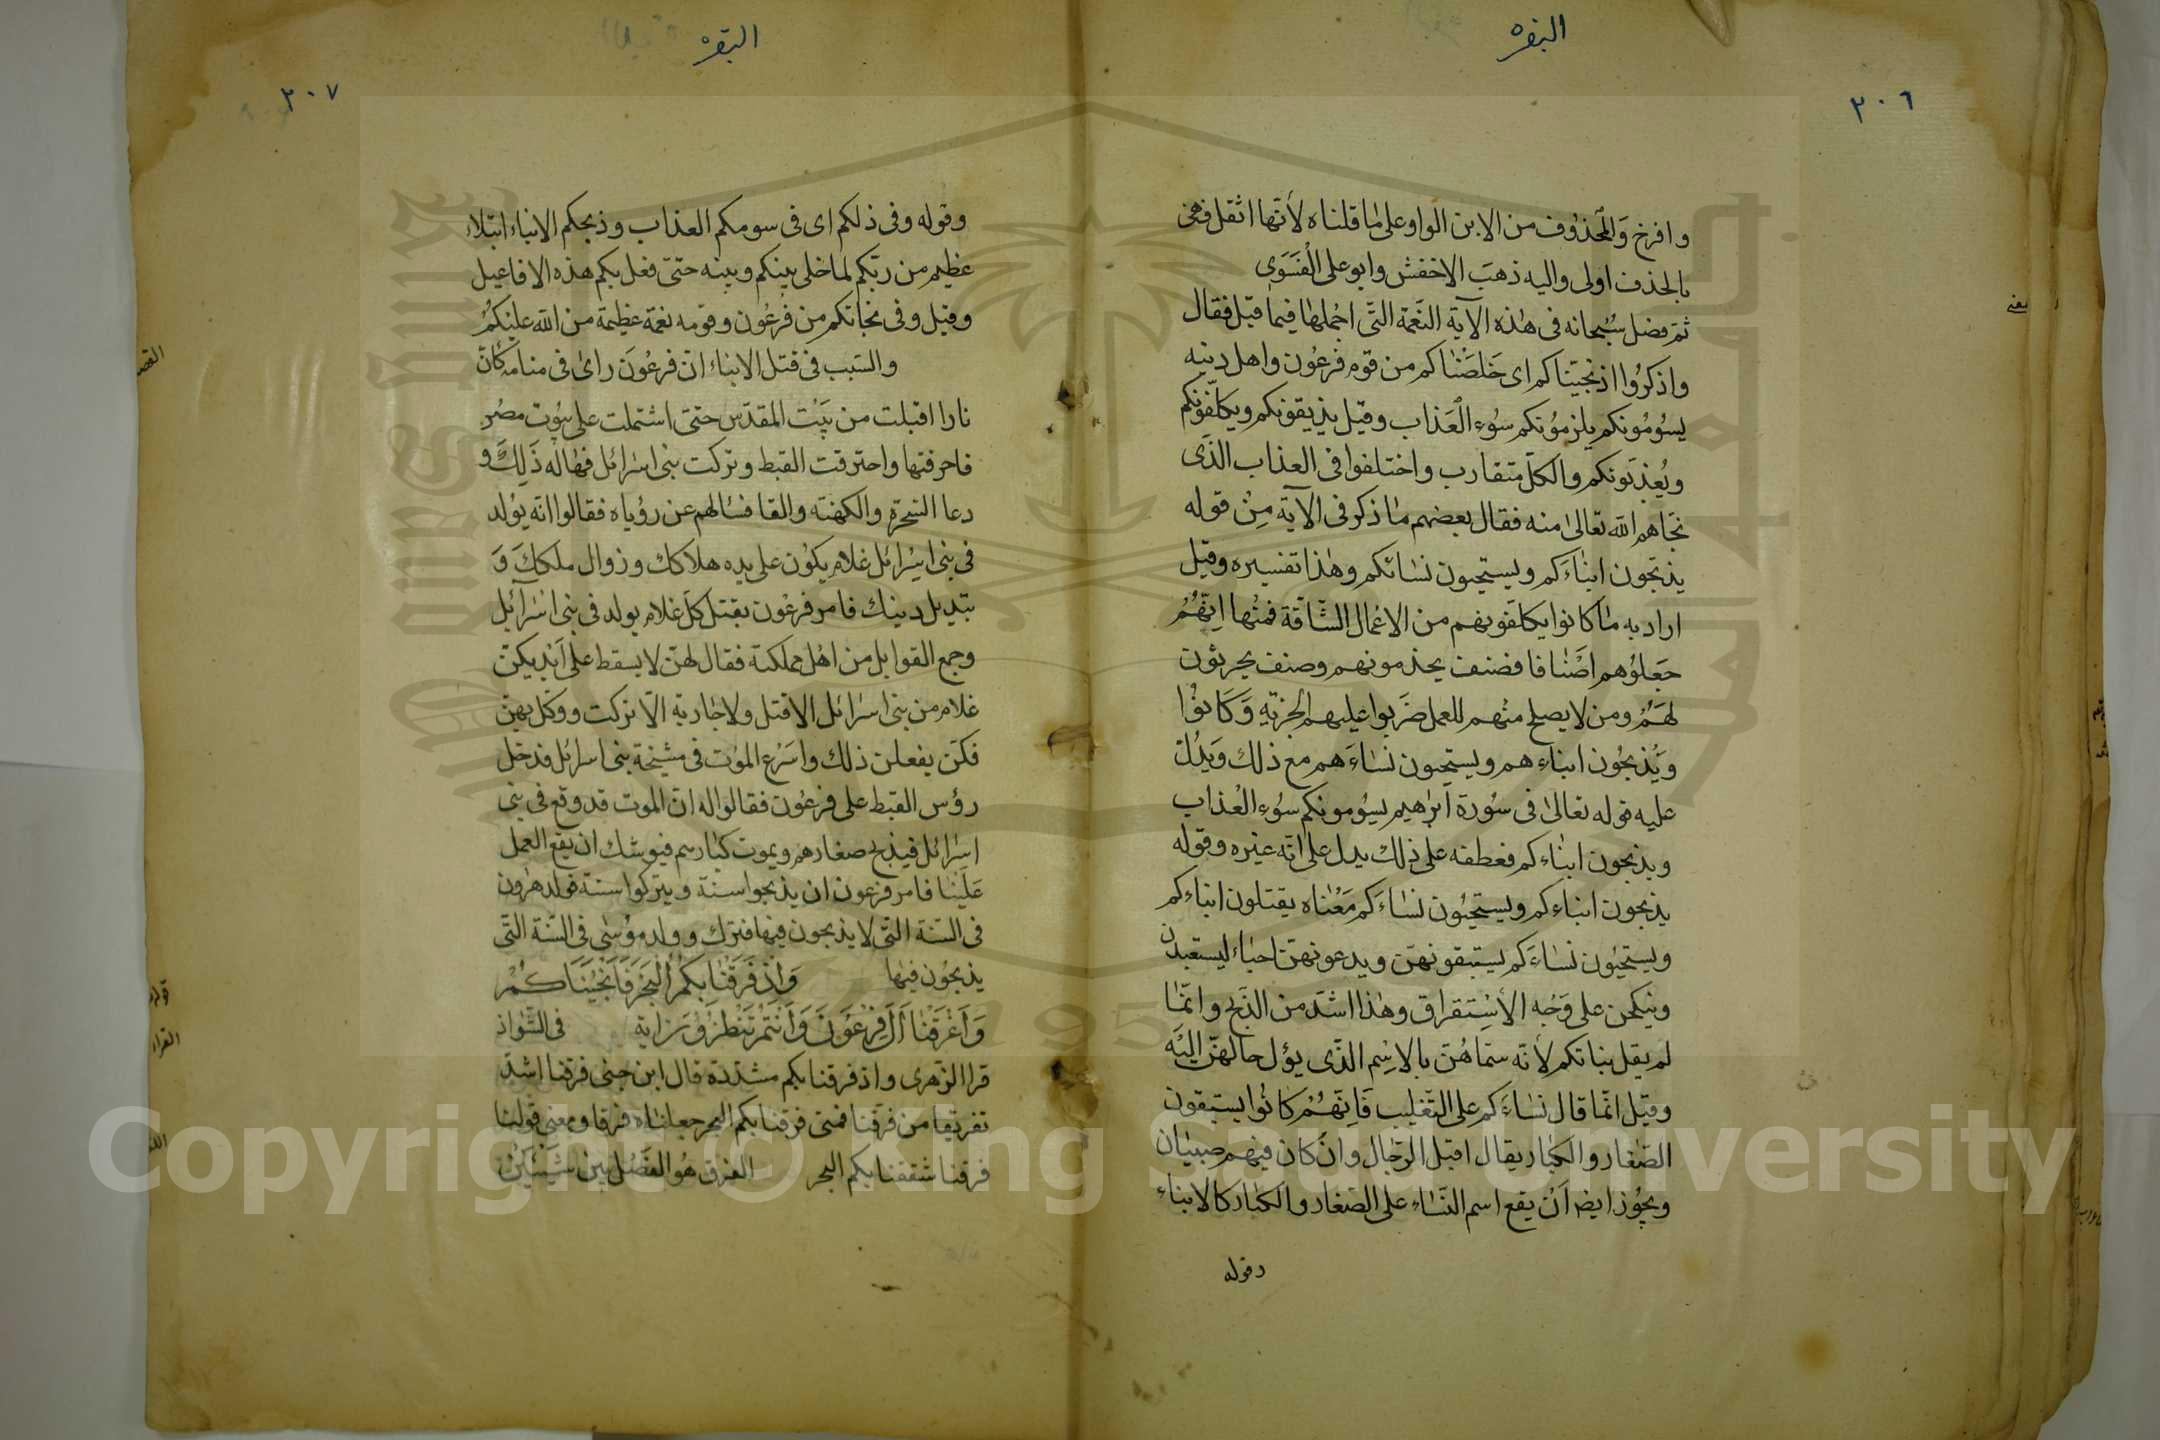 البقره
٣٠٦
وافرخ والمحذوف من الابن الواو على ما قلناه لأنها اثقل فهى
بالحذف اولى واليه ذهب الاخفش وابو على الفسوى
ثم فصل سبحانه فى هذه الآية النعمة التى اجملها فيما قبل فقال
واذكروا اذ نجيناكم اى خلصناكم من قوم فرعون واهل دينه
يسومونكم يلزمونكم سوء العذاب وقيل يذيقونكم ويكلفونكم
ويعذبونكم والكل متقارب واختلفوا فى العذاب الذى
نجاهم الله تعالى منه فقال بعضهم ما ذكر فى الآية من قوله
يذبحون ابناءكم ويستحيون نسائكم وهذا تفسيره وقيل
اراد به ما كانوا يكلفونهم من الاعمال الشاقة فمنها انهم
جعلوهم اصنافا فصنف يخدمونهم وصنف يحرثون
لهم ومن لا يصلح منهم للعمل ضربوا عليهم الجزية وكانوا
ويذبحون ابناءهم ويستحيون نساءهم مع ذلك ويدل
عليه قوله تعالى فى سورة ابرهيم يسومونكم سوء العذاب
ويذبحون ابناءكم فعطفه على ذلك يدل على انه غيره وقوله
يذبحون ابناءكم ويستحيون نساءكم معناه يقتلون ابناءكم
ويستحيون نساءكم يستبقونهن ويدعونهن احياء ليستعبدن
وينكحن على وجه الأسترقاق وهذا اشد من الذبح وانما
لم يقل بناتكم لأنه سماهن بالاسم الذى يؤل حالهن اليه
وقيل انما قال نساءكم على التغليب فانهم كانوا يستبقون
الصغار والكبار يقال اقبل الرجال وان كان فيهم صبيان
ويجوز ايضا ان يقع اسم النساء على الصغار والكبار كالابناء
وقوله
البقره
٣٠٧
وقوله وفى ذلكم اى فى سومكم العذاب وذبحكم الابناء ابتلاء
عظيم من ربكم لما خلى بينكم وبينه حتى فعل بكم هذه الافاعيل
وقيل وفى نجاتكم من فرعون وقومه نعمة عظيمة من الله عليكم
والسبب فى قتل الابناء ان فرعون راى فى منامه كان
نارا اقبلت من بيت المقدس حتى اشتملت على بيوت مصر
فاحرقتها واحترقت القبط وتركت بنى اسرائل فهاله ذلك و
دعا السحرة والكهنة والقافة فسالهم عن رؤياه فقالوا انه يولد
فى بنى اسرائل غلام يكون على يده هلاكك وزوال ملكك و
تبديل دينك فامر فرعون بقتل كل غلام يولد فى بنى اسرائيل
وجمع القوابل من اهل مملكته فقال لهن لا يسقط على ايديكن
غلام من بنى اسرائل الا قتل ولا جارية الا تركت ووكل بهن
فكن يفعلن ذلك واسرع الموت فى مشيخة بنى اسرائل فدخل
رؤس القبط على فرعون فقالوا له ان الموت قد وقع فى بنى
اسرائل فيذبح صغارهم ويموت كبارهم فيوشك ان يقع العمل
علينا فامر فرعون ان يذبحوا سنة ويتركوا سنة فولد هرون
فى السنة التى لا يذبحون فيها فترك وولد موسى فى السنة التى
يذبحون فيها وَاِذْ فَرَقْنَا بِكُمُ الْبَحْرَ فَاَنْجَيْنَاكُمْ
وَاَغْرَقْنَا آلَ فِرْعَوْنَ وَاَنْتُمْ تَنْظُرُونَ اية فى الشواذ
قرا الزهرى واذ فرقنا بكم مشددة قال ابن جنى فرقنا اشد
تفريقا من فرقنا فمعنى فرقنا بكم البحر جعلناه فرقا ومعنى قولنا
فرقنا شققنا بكم البحر الفرق هو الفصل بين شيئين
Copyright © King Saud University
1957